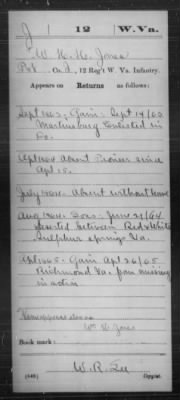 J 12 W.Va.
W. H. H. Jones
Pvt., Co. I, 12 Reg't W. Va. Infantry.
Appears on Returns as follows:
Sept 1863, Gain: Sept 14/63
Martinsburg Enlisted in
Co.
Apl 1864 Absent Prisoner since
Apl 15.
July 1864. Absent without leave
Aug 1864. Loss: June 21/64
deserted between Red & White
Sulphur springs Va.
Apl 1865. Gain Apl 26/65
Richmond Va. from missing
in action
Name appears also as
Wm H. Jones
Book mark:
W. R. Lee
(646) Copyist.